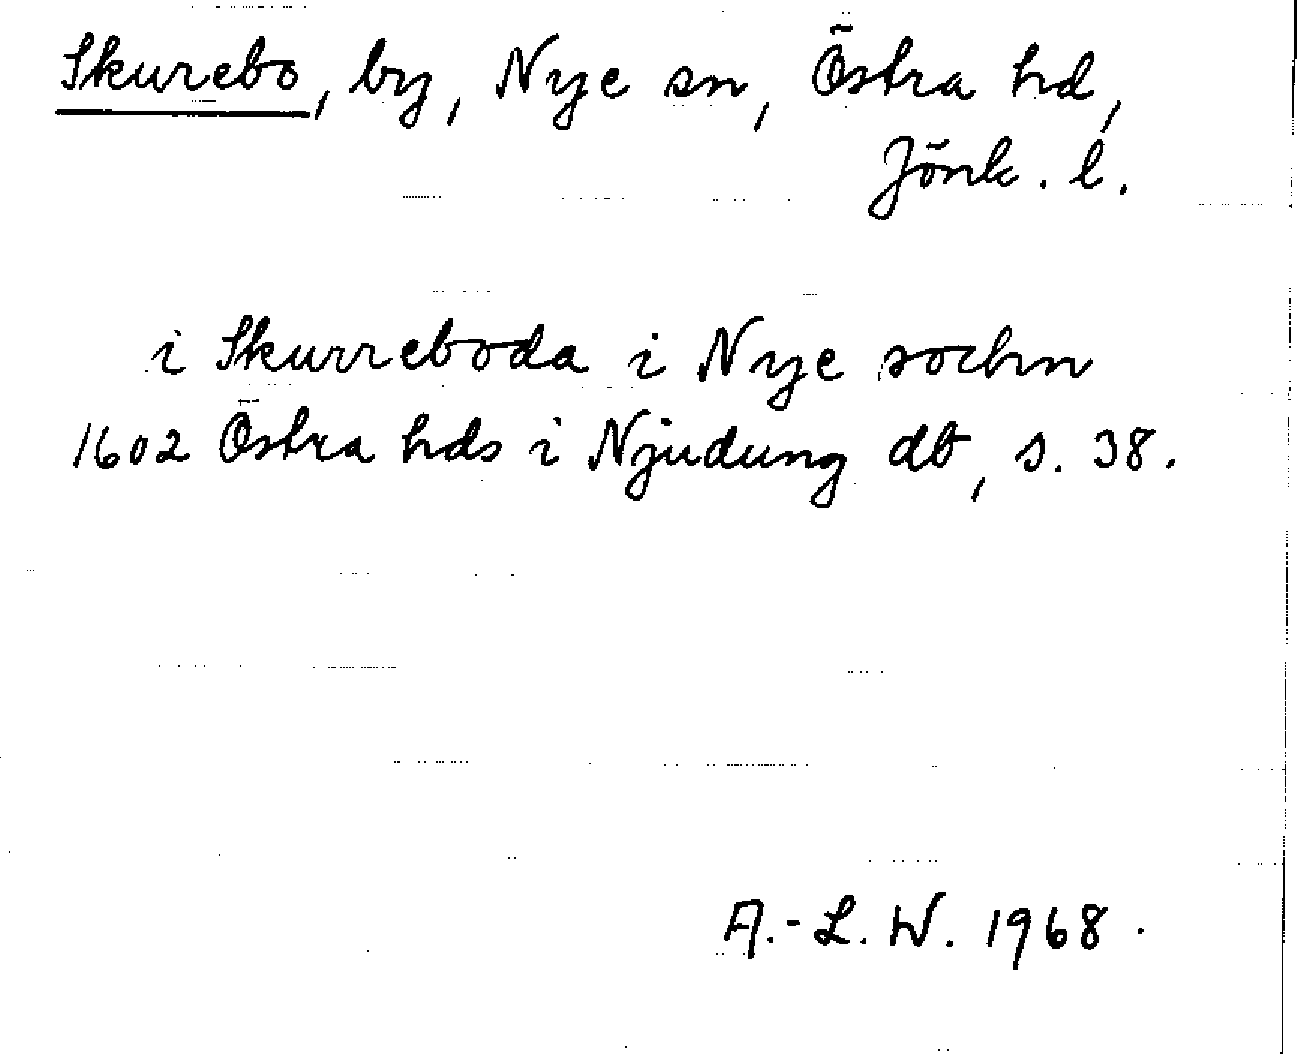 Skurebo, by, Nye sn, Östra hd,
Jönk. l.
i Skurreboda i Nye sochn
1602 Östra hds i Njudung db, s. 38.
A.-L. W. 1968.